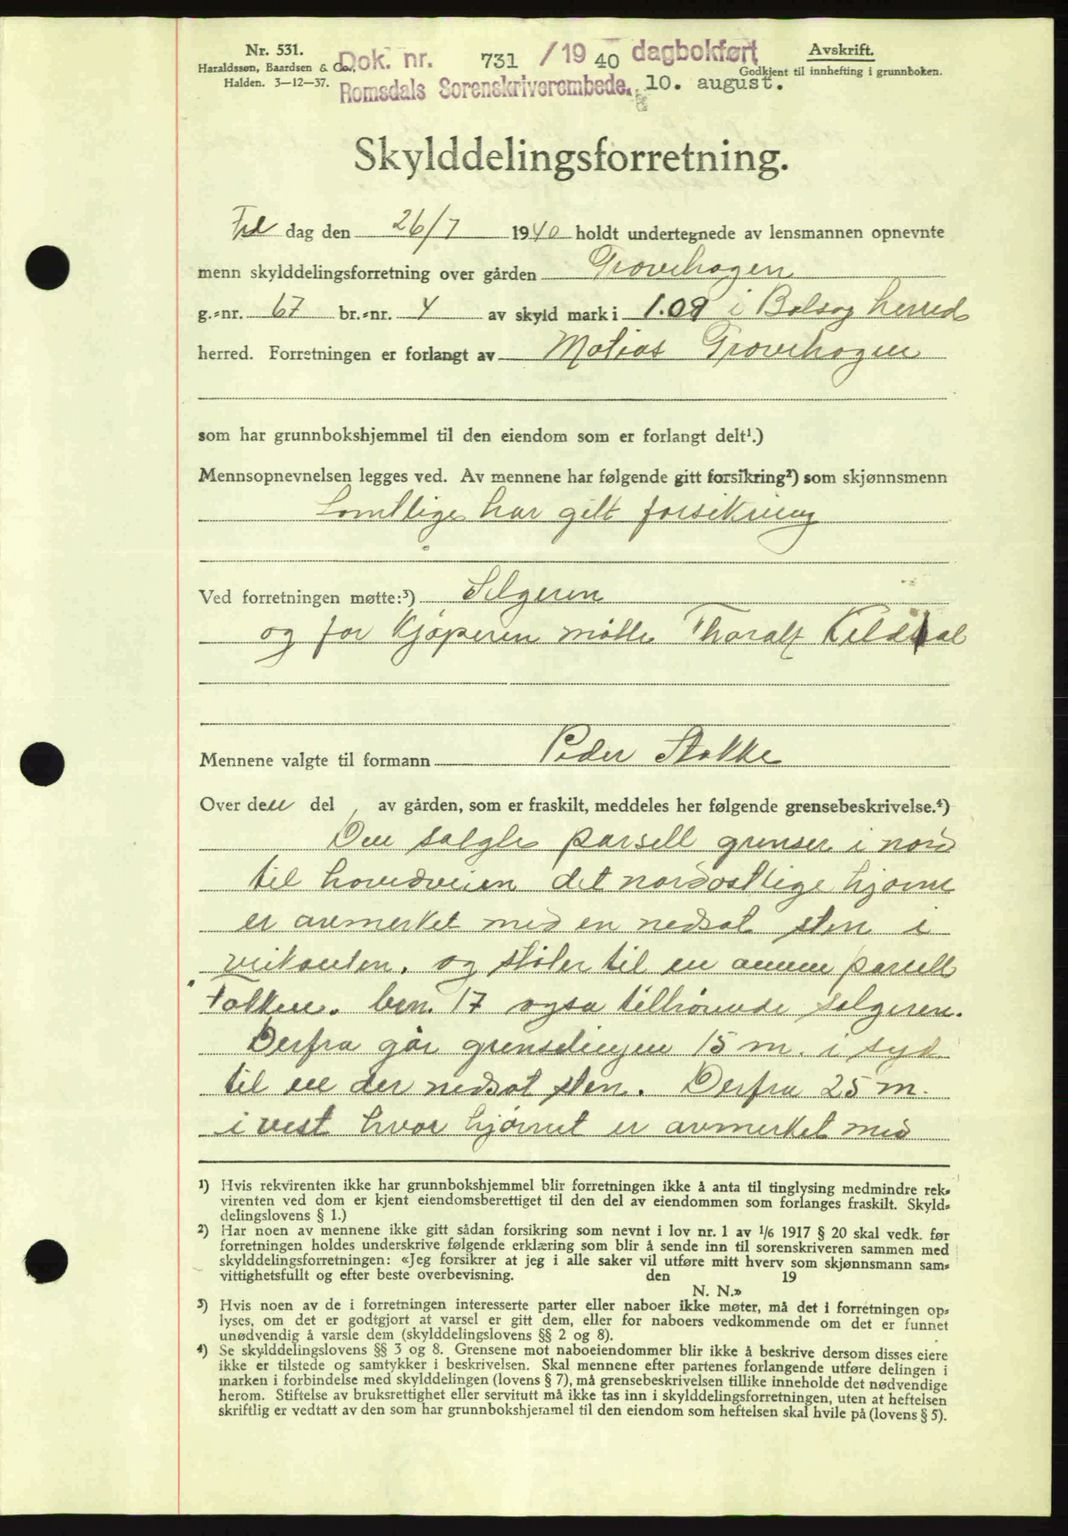 Nr. 531.
Haraldssen, Baardsen & Co.,
Halden. 3—12—37.
Dok. nr. 731 /19 40 dagbokført
Romsdals Sorenskriverembede. 10. august.
Avskrift.
Godkjent til innhefting i grunnboken.
Skylddelingsforretning.
Fre dag den 26/7 1940 holdt undertegnede av lensmannen opnevnte
menn skylddelingsforretning over gården Grovehagen
g.-nr. 67 br.-nr. 4 av skyld mark i 1.09 i Bolsøy herred
herred. Forretningen er forlangt av Matias Grovehagen
som har grunnbokshjemmel til den eiendom som er forlangt delt¹.)
Mennsopnevnelsen legges ved. Av mennene har følgende gitt forsikring²) som skjønnsmenn
Samtlige har gitt forsikring
Ved forretningen møtte:³) Selgeren
og for Kjøperen møtte Tharalt
Mennene valgte til formann Peder Stokke
Over den del av gården, som er fraskilt, meddeles her følgende grensebeskrivelse.⁴)
Den salgte parsell grenser i nord
til hovedveien det nordostlige hjørne
er avmerket med en nedsat sten i
veikanten. og støter til en annen parsell
brn. 17 ogsa tilhørende selgeren.
Derfra går grenselinjen 15 m. i syd
til en der nedsat sten. Derfra 25 m.
i vest hvor hjørnet er avmerket med
¹) Hvis rekvirenten ikke har grunnbokshjemmel blir forretningen ikke å anta til tinglysing medmindre rek-
virenten ved dom er kjent eiendomsberettiget til den del av eiendommen som forlanges fraskilt. Skyld-
delingslovens § 1.)
²) Har noen av mennene ikke gitt sådan forsikring som nevnt i lov nr. 1 av 1/6 1917 § 20 skal vedk. før
forretningen holdes underskrive følgende erklæring som blir å sende inn til sorenskriveren sammen med
skylddelingsforretningen: «Jeg forsikrer at jeg i alle saker vil utføre mitt hverv som skjønnsmann sam-
vittighetsfullt og efter beste overbevisning. den 19
N. N.»
³) Hvis noen av de i forretningen interesserte parter eller naboer ikke møter, må det i forretningen op-
lyses, om det er godtgjort at varsel er gitt dem, eller for naboers vedkommende om det er funnet
unødvendig å varsle dem (skylddelingslovens §§ 2 og 8).
⁴) Se skylddelingslovens §§ 3 og 8. Grensene mot naboeiendommer blir ikke å beskrive dersom disses eiere
ikke er tilstede og samtykker i beskrivelsen. Skal mennene efter partenes forlangende utføre delingen i
marken i forbindelse med skylddelingen (lovens § 7), må grensebeskrivelsen tillike inneholde det nødvendige
herom. Stiftelse av bruksrettighet eller servitutt må ikke tas inn i skylddelingsforretningen, uten at heftelsen
skriftlig er vedtatt av den som har grunnbokshjemmel til den eiendom som heftelsen skal hvile på (lovens § 5).